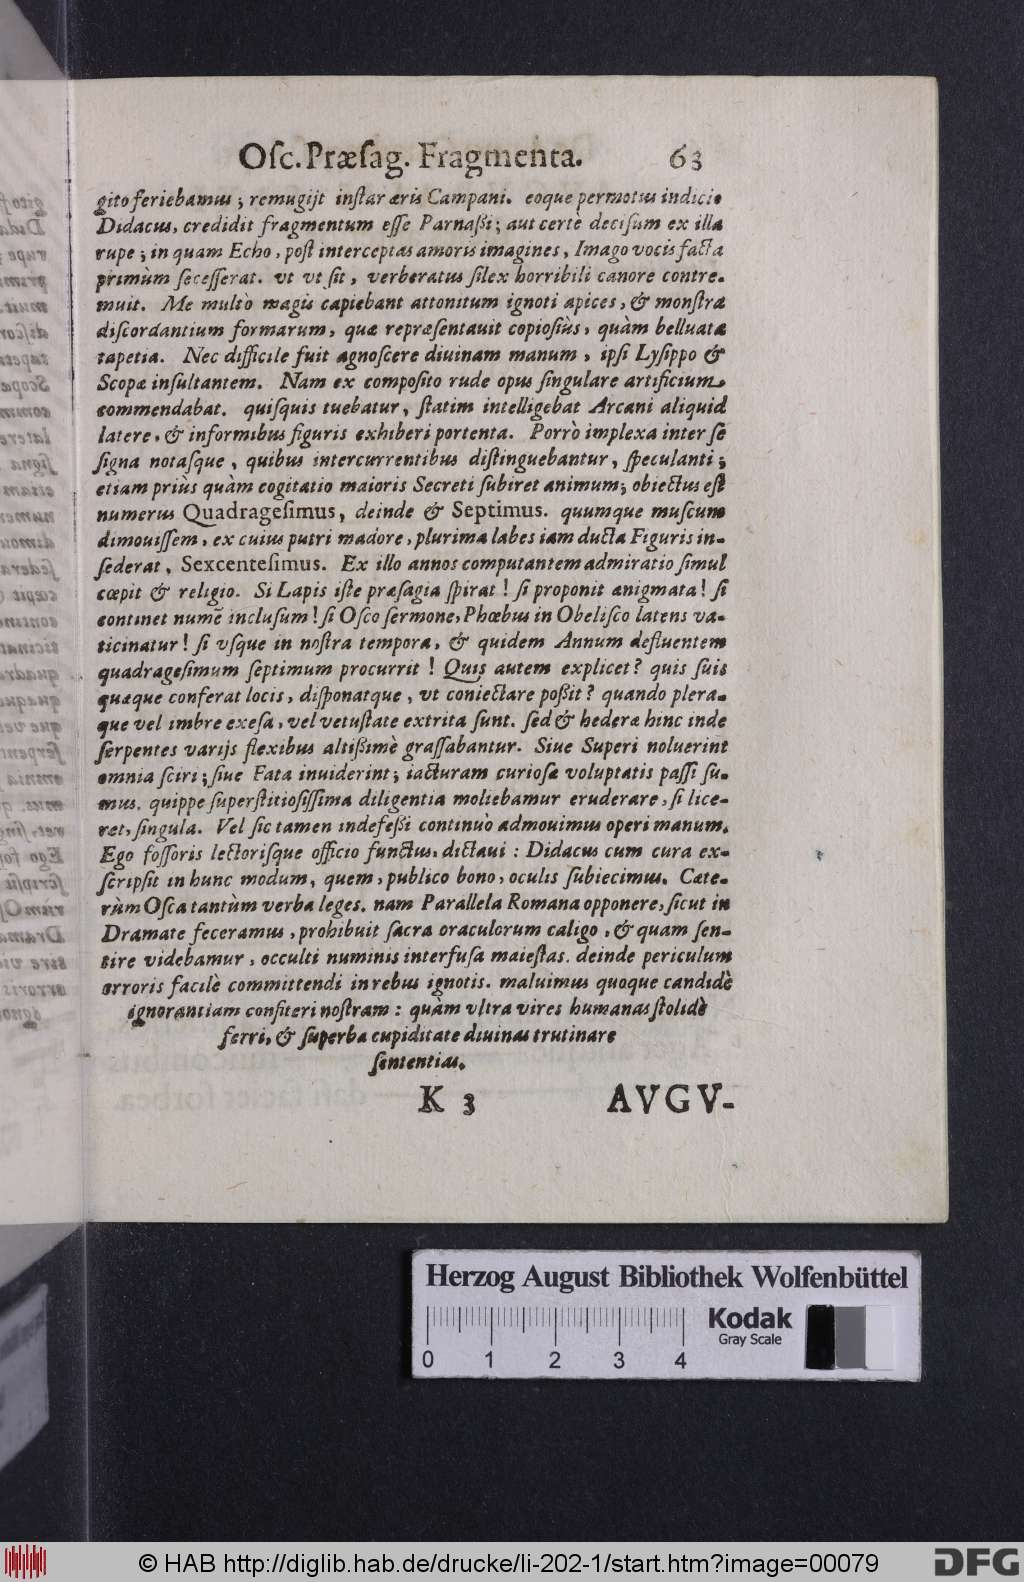 Oſc. Præſag. Fragmenta. 63
gito feriebamus; remugijt inſtar æris Campani. eoque permotus indicio
Didacus, credidit fragmentum eſſe Parnaßi; aut certè deciſum ex illa
rupe; in quam Echo, poſt interceptas amoris imagines, Imago vocis facta
primùm ſeceſſerat. vt vt ſit, verberatus ſilex horribili canore contre-
muit. Me multò magis capiebant attonitum ignoti apices, & monſtra
diſcordantium formarum, quæ repræſentauit copioſiùs, quàm belluata
tapetia. Nec difficile fuit agnoſcere diuinam manum, ipſi Lyſippo &
Scopæ inſultantem. Nam ex compoſito rude opus ſingulare artificium
commendabat. quiſquis tuebatur, ſtatim intelligebat Arcani aliquid
latere, & informibus figuris exhiberi portenta. Porrò implexa inter ſe
ſigna notaſque, quibus intercurrentibus diſtinguebantur, ſpeculanti;
etiam priùs quàm cogitatio maioris Secreti ſubiret animum; obiectus eſt
numerus Quadrageſimus, deinde & Septimus. quumque muſcum
dimouiſſem, ex cuius putri madore, plurima labes iam ducta Figuris in-
ſederat, Sexcenteſimus. Ex illo annos computantem admiratio ſimul
cœpit & religio. Si Lapis iſte præſagia ſpirat! ſi proponit ænigmata! ſi
continet numẽ incluſum! ſi Oſco ſermone, Phœbus in Obeliſco latens va-
ticinatur! ſi vſque in noſtra tempora, & quidem Annum defluentem
quadrageſimum ſeptimum procurrit! Quis autem explicet? quis ſuis
quæque conferat locis, diſponatque, vt coniectare poßit? quando plera-
que vel imbre exeſa, vel vetuſtate extrita ſunt. ſed & hederæ hinc inde
ſerpentes varijs flexibus altißimè graſſabantur. Siue Superi noluerint
omnia ſciri; ſiue Fata inuiderint; iacturam curioſæ voluptatis paſſi ſu-
mus. quippe ſuperſtitioſiſſima diligentia moliebamur eruderare, ſi lice-
ret, ſingula. Vel ſic tamen indefeßi continuò admouimus operi manum.
Ego foſſoris lectoriſque officio functus, dictaui: Didacus cum cura ex-
ſcripſit in hunc modum, quem, publico bono, oculis ſubiecimus. Cæte-
rùm Oſca tantùm verba leges. nam Parallela Romana opponere, ſicut in
Dramate feceramus, prohibuit ſacra oraculorum caligo, & quam ſen-
tire videbamur, occulti numinis interfuſa maieſtas. deinde periculum
erroris facilè committendi in rebus ignotis. maluimus quoque candidè
ignorantiam confiteri noſtram: quàm vltra vires humanas ſtolidè
ferri, & ſuperba cupiditate diuinas trutinare
ſententias.
K 3 AVGV-
Herzog August Bibliothek Wolfenbüttel
0 1 2 3 4
Kodak
Gray Scale
© HAB http://diglib.hab.de/drucke/li-202-1/start.htm?image=00079
DFG